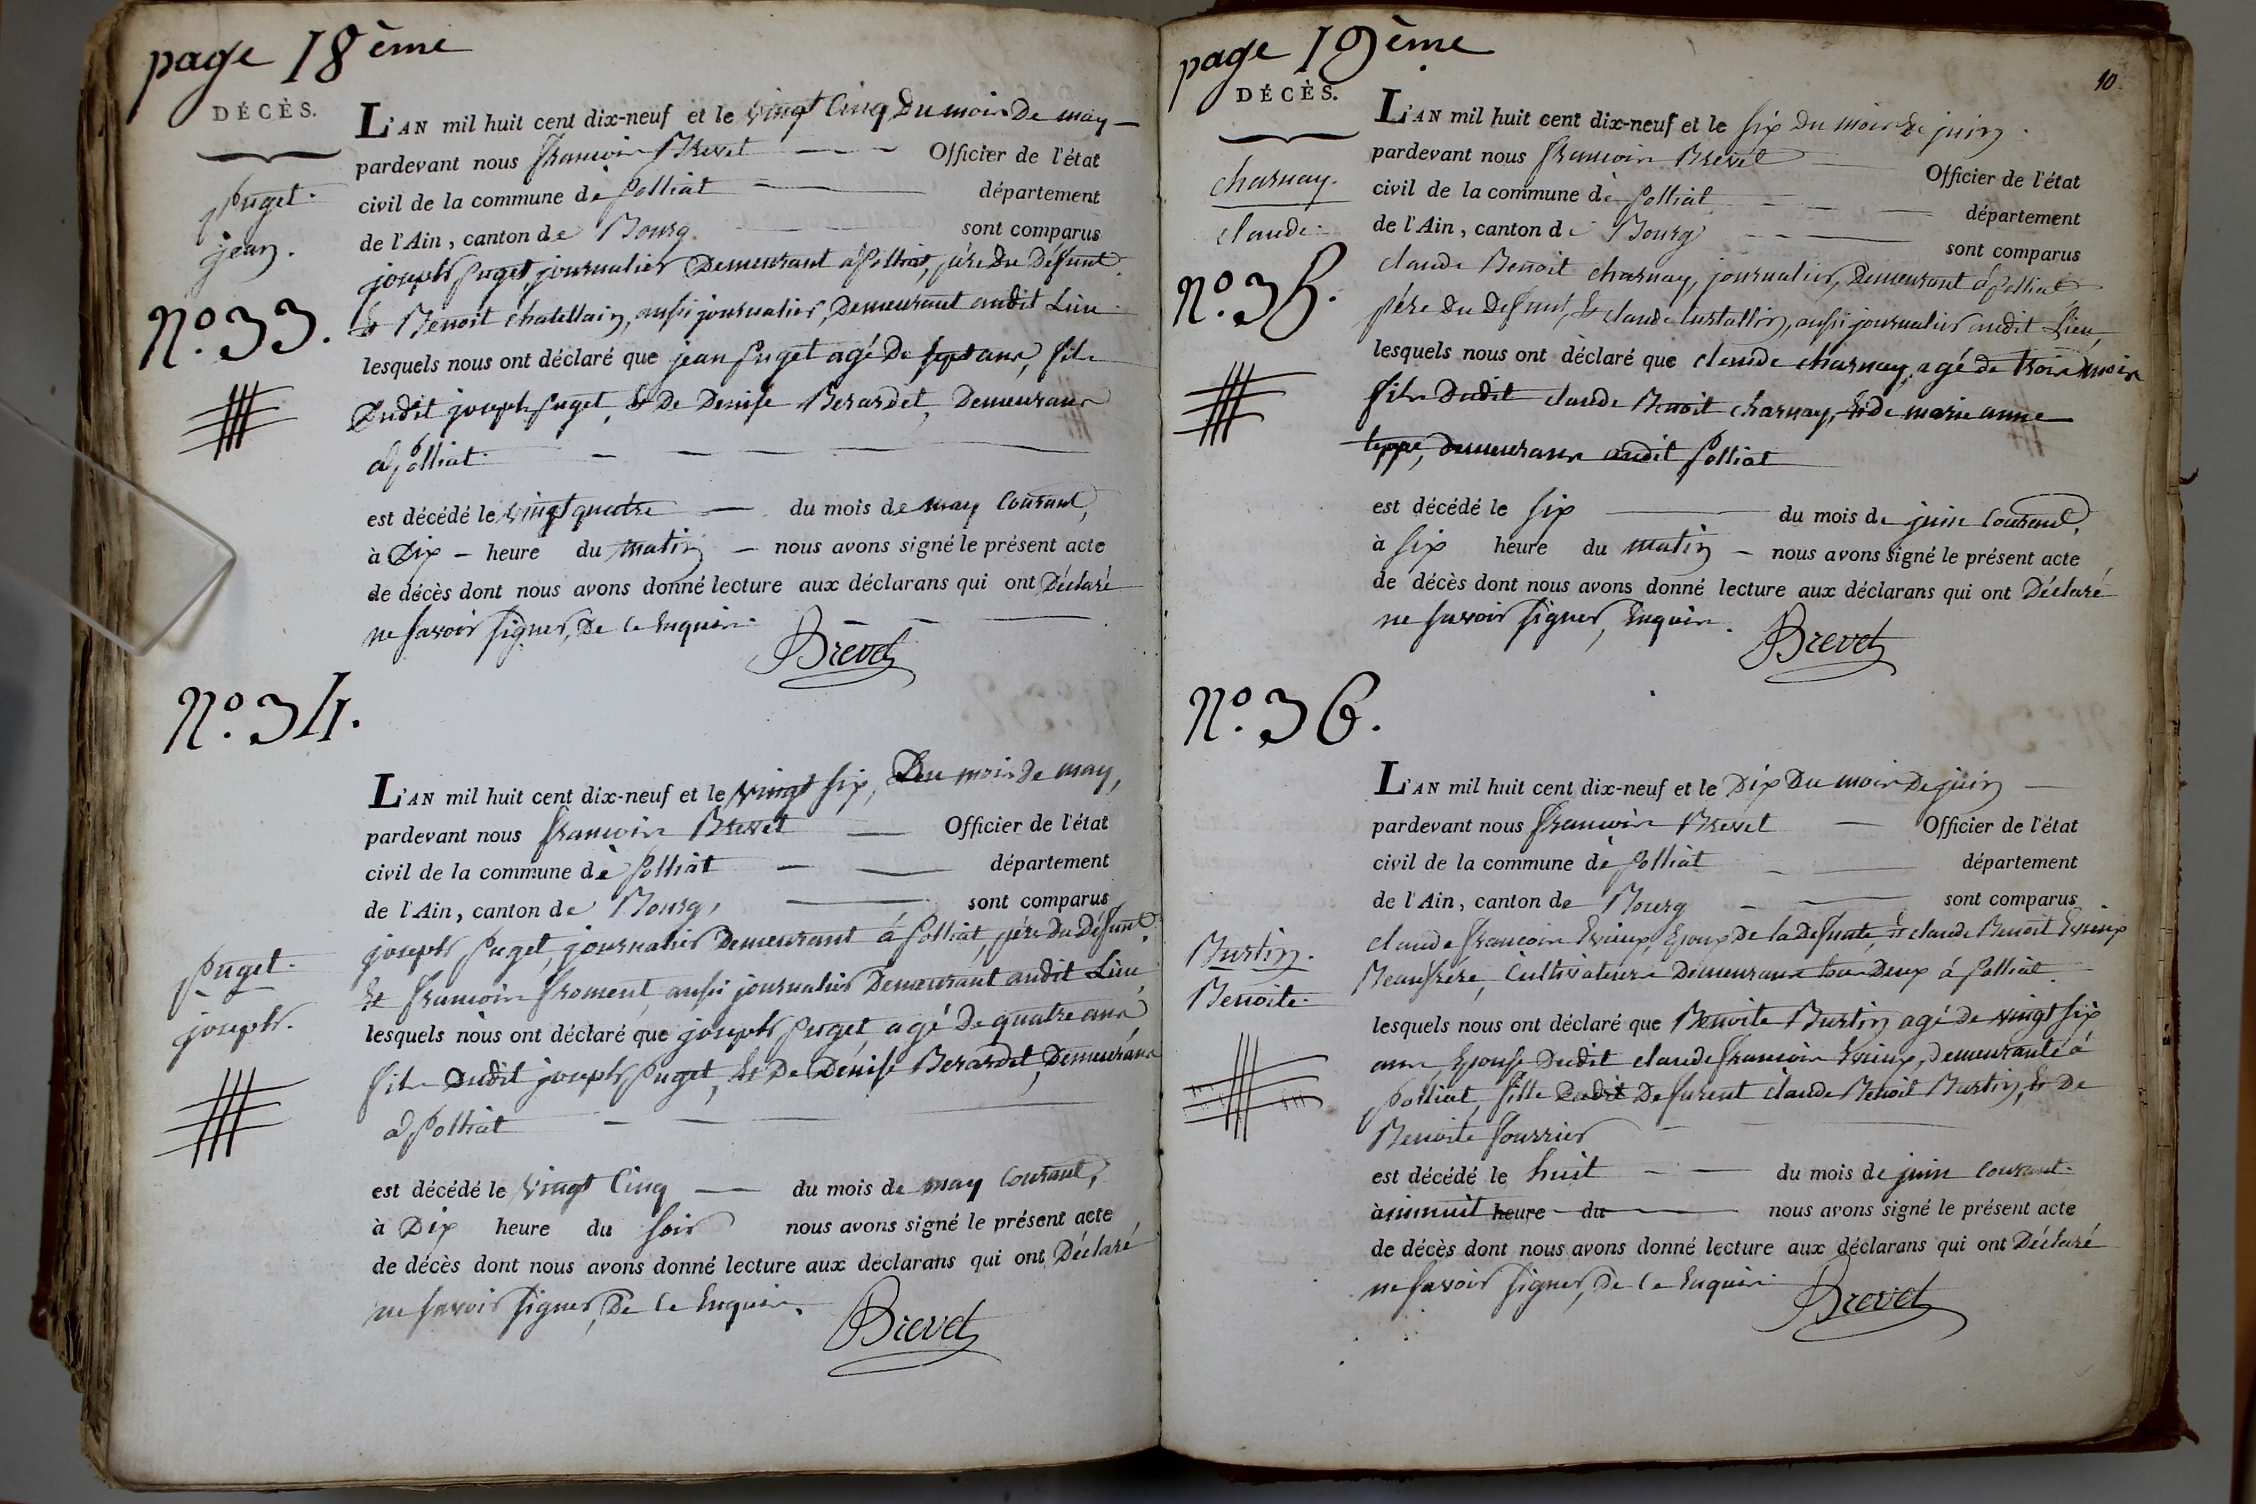 page 18ème
DÉCÈS.
puget.
jean.
N.o 33.
L'AN mil huit cent dix-neuf et le vingt Cinq Du mois De may
pardevant nous francois Brevet Officier de l'état
civil de la commune de polliat département
de l'Ain, canton de Bourg sont comparus
joseph puget, journalier Demeurant à polliat, père Du Défunt
& Benoit chatellain, aussi journalier, Demeurant audit Lieu
lesquels nous ont déclaré que jean puget agé De sept ans, fils
Dudit joseph puget, & De Denise Berardet, Demeurans
à polliat.
est décédé le vingt quatre du mois de may Courant,
à Dix heure du matin nous avons signé le présent acte
de décès dont nous avons donné lecture aux déclarans qui ont Déclaré
ne savoir signer, De ce Enquis.
Brevet
N.o 34.
puget.
joseph.
L'AN mil huit cent dix-neuf et le vingt six, Du mois de may,
pardevant nous francois Brevet Officier de l'état
civil de la commune de polliat département
de l'Ain, canton de Bourg, sont comparus
joseph puget, journalier Demeurant à polliat, père Du Défunt
& francois froment, aussi journalier Demeurant audit Lieu
lesquels nous ont déclaré que joseph puget, agé De quatre ans
fils Dudit joseph puget, & De Dénise Berardet, Demeurans
à polliat
est décédé le vingt Cinq du mois de may Courant,
à Dix heure du soir nous avons signé le présent acte
de décès dont nous avons donné lecture aux déclarans qui ont Déclaré
ne savoir signer, De ce Enquis.
Brevet
page 19ème
10.
DÉCÈS.
charnay.
claude.
N.o 35.
L'AN mil huit cent dix-neuf et le six du mois de juin.
pardevant nous francois Brevet Officier de l'état
civil de la commune de polliat département
de l'Ain, canton de Bourg sont comparus
claude Benoit charnay, journalier, Demeurant à polliat
père du Defunt, & claude , aussi journalier audit Lieu,
lesquels nous ont déclaré que claude charnay, agé de trois mois
fils Dudit claude Benoit charnay, & de marie anne
teppe, demeurans audit polliat
est décédé le six du mois de juin Courant,
à six heure du matin nous avons signé le présent acte
de décès dont nous avons donné lecture aux déclarans qui ont Déclaré
ne savoir signer, Enquis.
Brevet
N.o 36.
Burtin.
Benoite.
L'AN mil huit cent dix-neuf et le Dix Du mois De juin
pardevant nous francois Brevet Officier de l'état
civil de la commune de polliat département
de l'Ain, canton de Bourg sont comparus
claude francois Evieux, Epoux De la Defunte, & claude Benoit Evieux
Beaufrère, Cultivateurs Demeurans tous Deux à polliat
lesquels nous ont déclaré que Benoite Burtin agé de vingt six
ans, Epouse Dudit claude francois Evieux, demeurante à
polliat, fille Dudit claude Benoit Burtin, & De
Benoite fourrier
est décédé le huit du mois de juin Courant.
à minuit heure du nous avons signé le présent acte
de décès dont nous avons donné lecture aux déclarans qui ont Déclaré
ne savoir signer, De ce Enquis.
Brevet